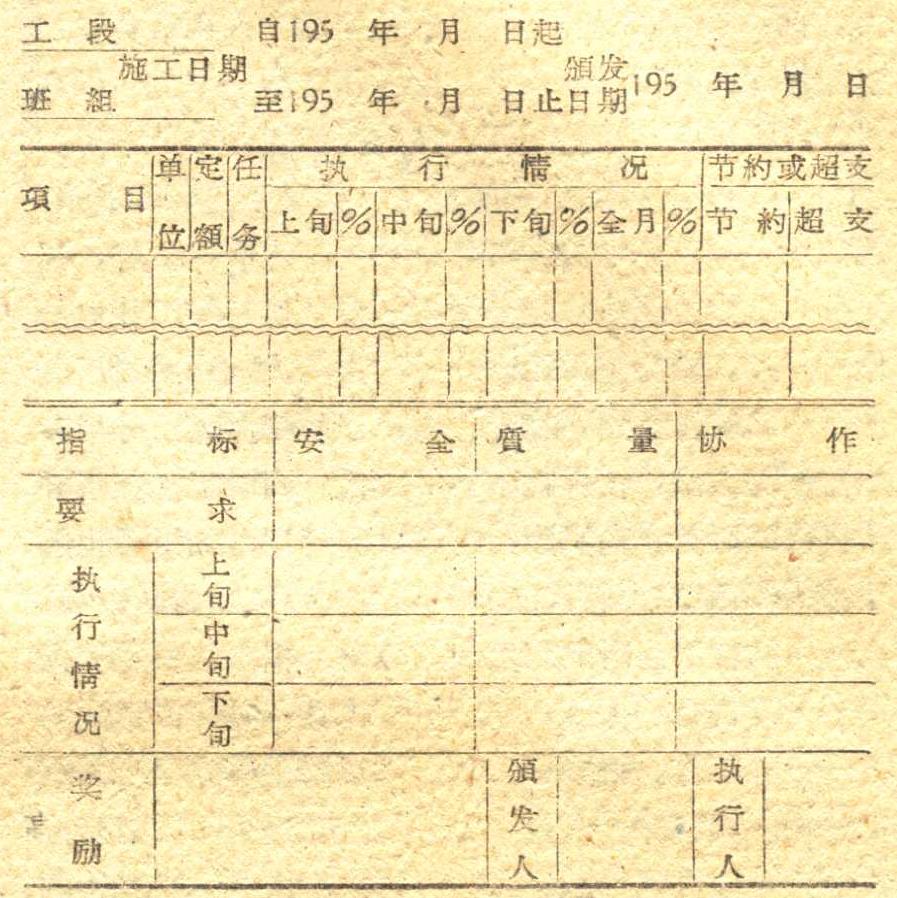 工段 自195 年 月 日起
施工日期 頒发
班組 至195 年 月 日止日期195 年 月 日
項目 单位 定額 任务 执行情况 节約或超支
上旬 % 中旬 % 下旬 % 全月 % 节約 超支
指标 安全 質量 协作
要求
执行情况 上旬
中旬
下旬
奖励 頒发人 执行人